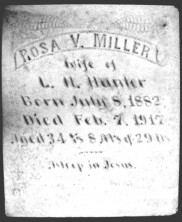 ROSA V. MILLER
Wife of
L. H. Hunter
Born July 8, 1882
Died Feb. 7, 1917
Aged 34 Ys 8 Ms & 29 Ds
Asleep in Jesus.